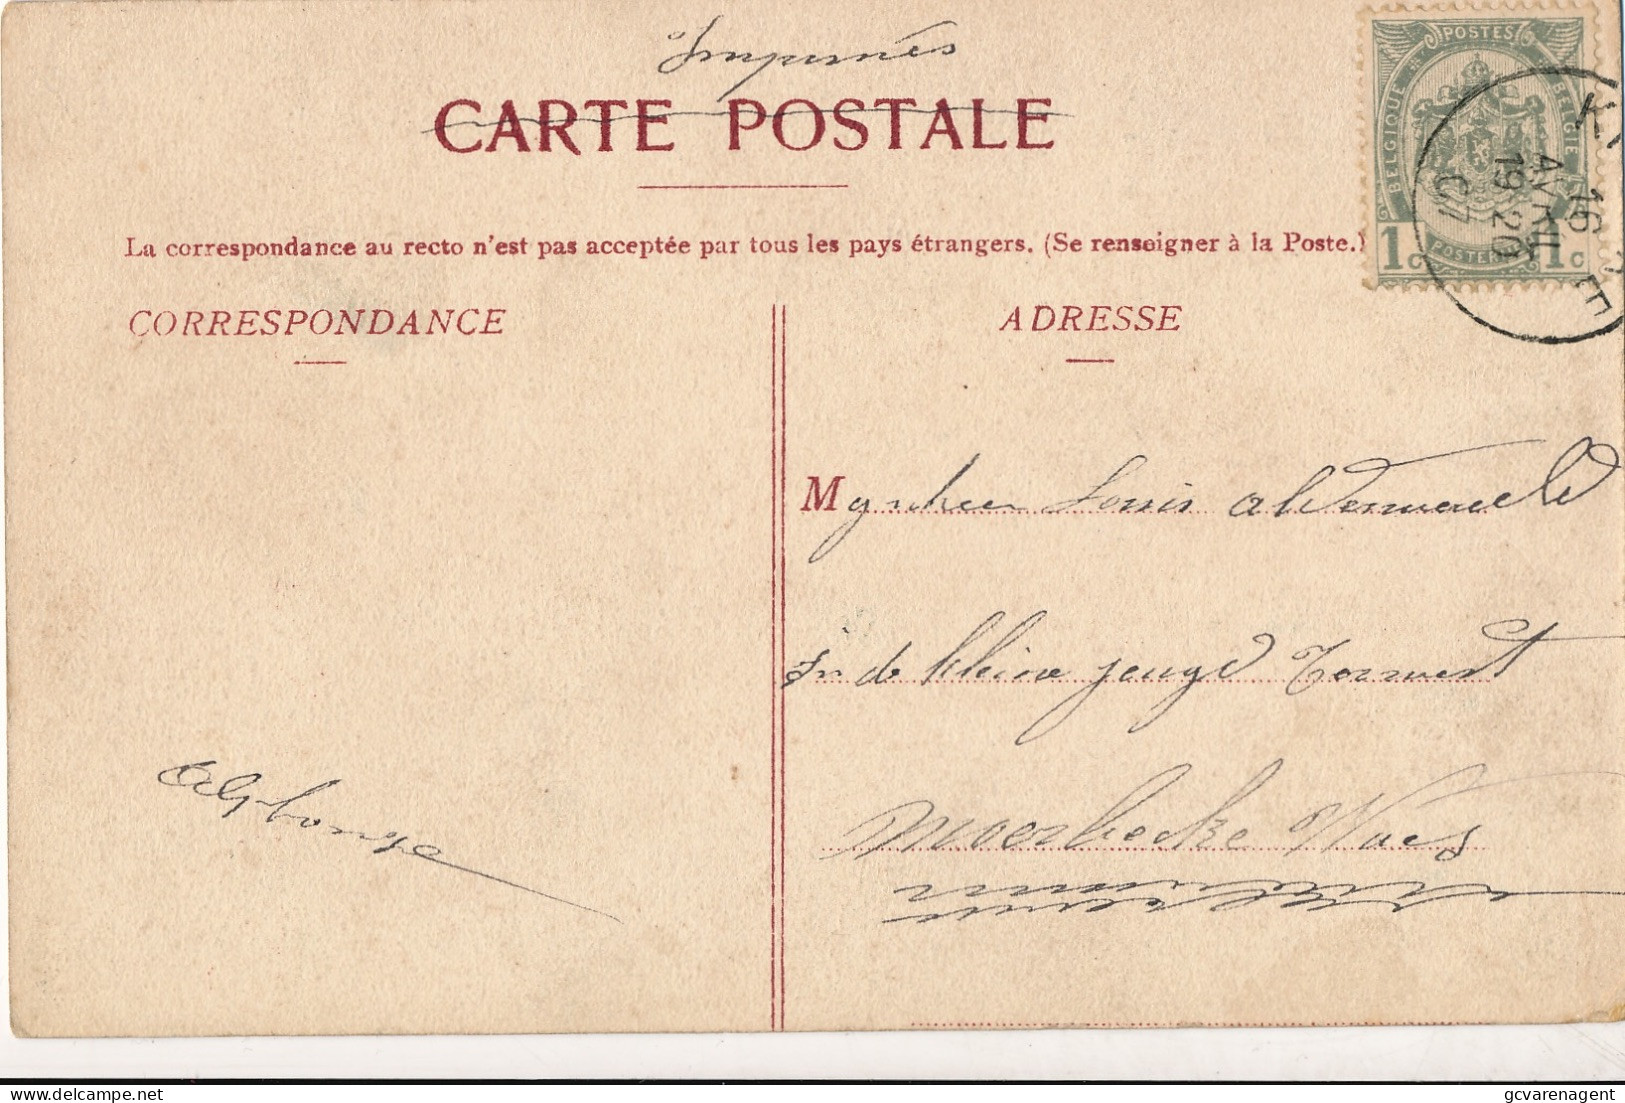 Imprimés
CARTE POSTALE
POSTES
BELGIQUE BELGIE
1c POSTERIJ 1c
16 AVRIL 19 20 07
La correspondance au recto n'est pas acceptée par tous les pays étrangers. (Se renseigner à la Poste.)
CORRESPONDANCE
ADRESSE
Mynheer Louis
In de kleine jeugd
Moerbecke Waes
Alphonse
gcvarenagent